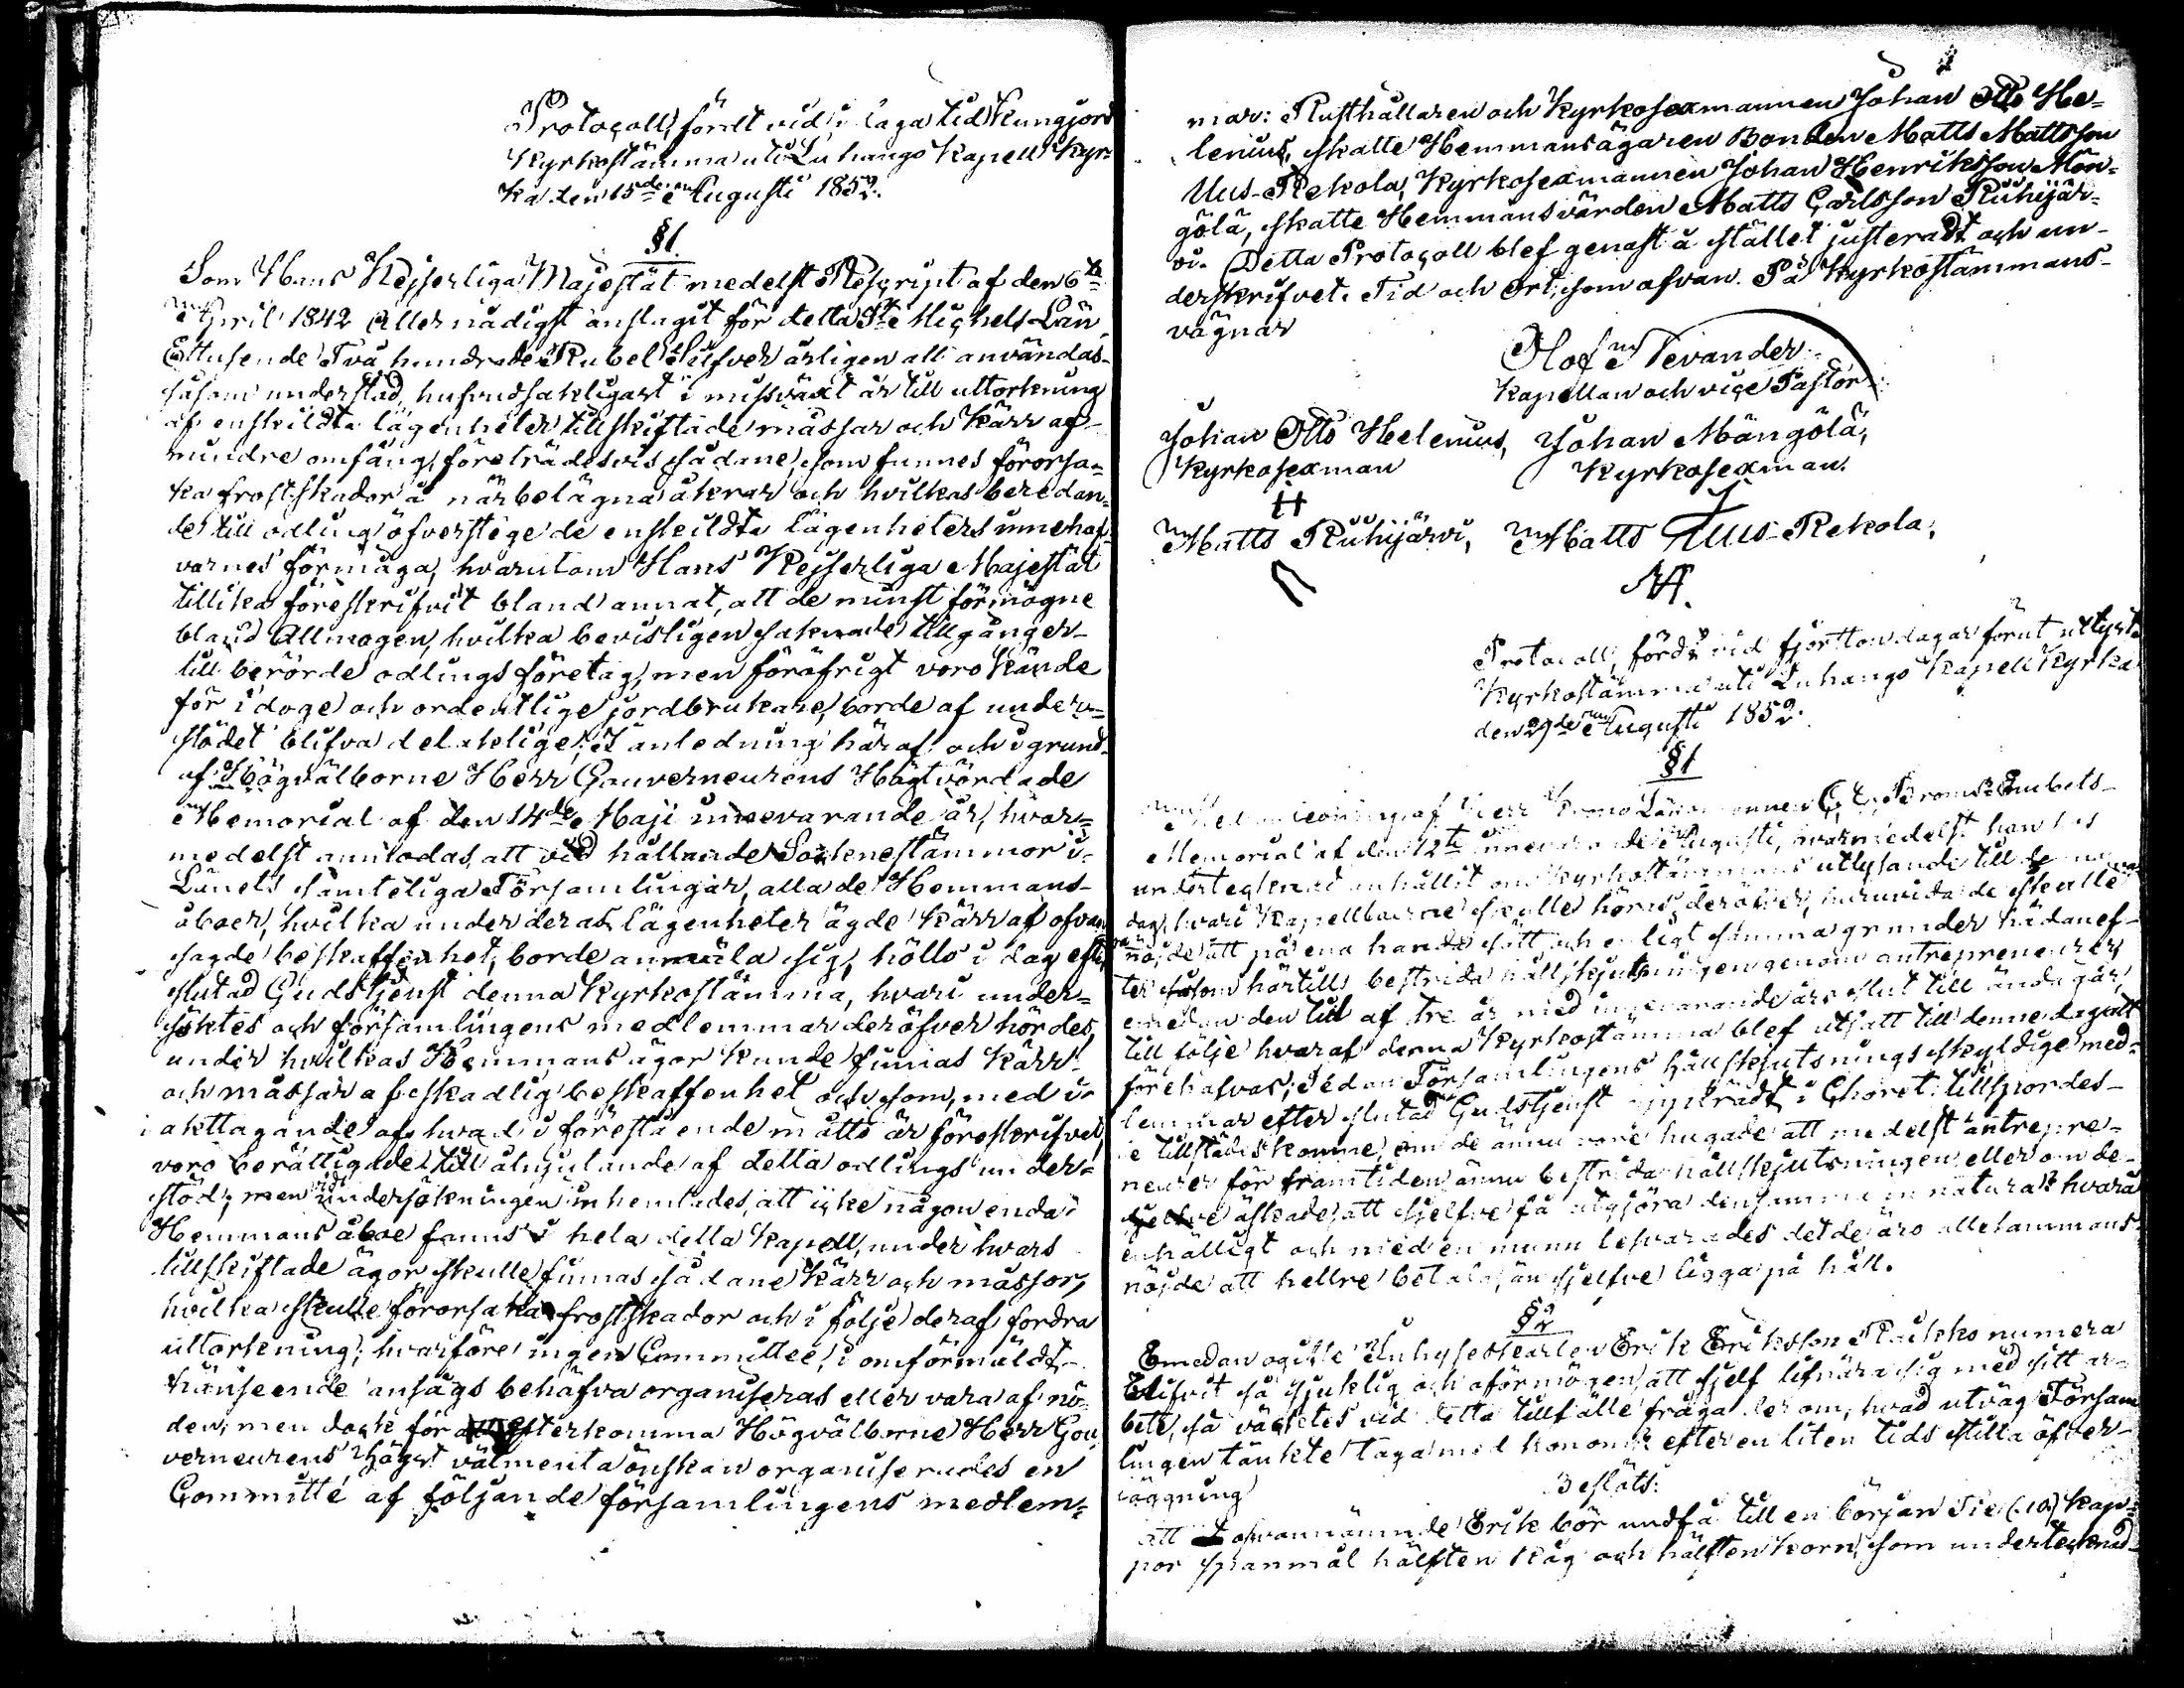 Protocoll, fördt vid i laga tid kungjord
Kyrkostämma uti Luhango Kapell Kyr-
ka den 15de Augusti 1852.
§ 1
Som Hans Kejserliga Majestät medelst Rescript af den 6te
April 1842 Allernådigst anslagit för detta St Michels Län
Ettusende Två hundrade Rubel Silfver årligen att användas
såsom understöd, hufvudsakligast i missväxt år till uttorkning
af enskildta lägenheter tillskiftade mässar och Kärr af
mindre omfång, företrädesvis sådane, som funnes förorsa-
ka frostskador å närbelägna åkrar och hvilkas beredan-
de till odling öfverstege de enskildta lägenheters innehaf-
varnes förmåga, hvarutom Hans Kejserliga Majestät
tillika föreskrifvit bland annat, att de minst förmögne
bland Allmogen, hvilka bevisligen saknade tillgånger
till berörde odlings företag, men föröfrigt voro kände
för idoge och ordentlige jordbrukare, borde af under-
stödet blifva delaktige; I anledning häraf och i grund
af Högvälborne Herr Gouverneurens Högtvördade
Memorial af den 14de Maji innevarande år, hvar-
medelst anmodas, att vid hållande Sockenstämmor i
Länets samteliga Församlingar, alla de Hemmans-
åboer, hvilka under deras lägenheter ägde Kärr af ofvan
sagde beskaffenhet, borde anmäla sig, hölls i dag efter
slutad Gudstjenst denna Kyrkostämma, hvari under-
söktes och församlingens medlemmar deröfver hördes,
under hvilkas Hemmans ägor kunde finnas Kärr
och mässar af skadlig beskaffenhet och som, med i-
akttagande af hvad i förestående måtto är föreskrifvet,
voro berättigade till åtnjutande af detta odlings under-
stöd; men vid undersökningen inhemtades, att icke någon enda
Hemmans åboe fanns i hela detta Kapell, under hvars
tillskiftade ägor skulle finnas sådane Kärr och mässor,
hvilka skulle förorsaka frostskador och i följe deraf fordra
uttorkning; hvarföre ingen Committee, i omförmäldt
hänseende ansågs behöfva organiseras eller vara af nö-
den, men dock för att efterkomma Högvälborne Herr Gou-
verneurens högst välmenta önskan organiserades en
Committé af följande församlingens medlem-
mar: Rusthållaren och Kyrkosexmannen Johan Otto He-
lenius, skatte Hemmansägaren Bonden Matts Mattsson
Uus-Rekola, Kyrkosexmannen Johan Henriksson Män-
gölä, skatte Hemmansvärden Matts Carlsson Riihijär-
vi. Detta Protocoll blef genast å stället justeradt och un-
derskrifvet. Tid och Ort, som ofvan. På Kyrkostämmans
vägnar
Olof Nevander
Kapellan och vice Pastor
Johan Otto Helenius, Johan Mängölä,
Kyrkosexman Kyrkosexman.
Matts Riihijärvi, Matts Uus-Rekola,
Protocoll, fördt vid fjortton dagar förut utlyst
Kyrkostämma uti Luhango Kapell Kyrka
den 29de Augusti 1852.
§ 1
af Herr
Memorial af den 12te innevarande Augusti, hvarmedelst han hos
undertecknad anhållit om Kyrkostämmans utlysande till denna
dag, hvari Kapellboerne skulle höras deröfver, huruvida de skulle
nöjde att på ena handa sätt och enligt samma grunder hädanef-
ter såsom härtills bestrida hållskjutsningen genom antrepreneurer
emedan den tid af tre år med innevarande års slut till ända går,
till följe hvaraf denna Kyrkostämma blef utsatt till denne dag att
förehafvas; Sedan Församlingens hållskjutsnings skyldige med-
lemmar efter slutad Gudstjenst uppträdt i Choret, tillspordes
de tillstädeskomne, om de ännu vore hugade att medelst antrepre-
neurer för framtiden ännu bestrida hållskjutsningen, eller om de
sjelfve åskade, att sjelfve få utgjöra densamma in natura? hvarå
enhälligt och med en munn besvarades det de äro allesammans
nöjde att hellre betala, än sjelfve ligga på håll.
§ 2
Emedan ogifte Erik Eriksson Raikko numera
blifvit så sjuklig och oförmögen att sjelf lifnära sig med sitt ar-
bete, så väcktes vid detta tillfälle fråga derom, hvad utväg Försam-
lingen tänkte taga med honom? efter en liten tids stilla öfver-
läggning Beslöts:
att ofvannämnde Erik bör undfå till en början Tie (10) kap-
por spanmål hälften Råg och hälften Korn, som undertecknad